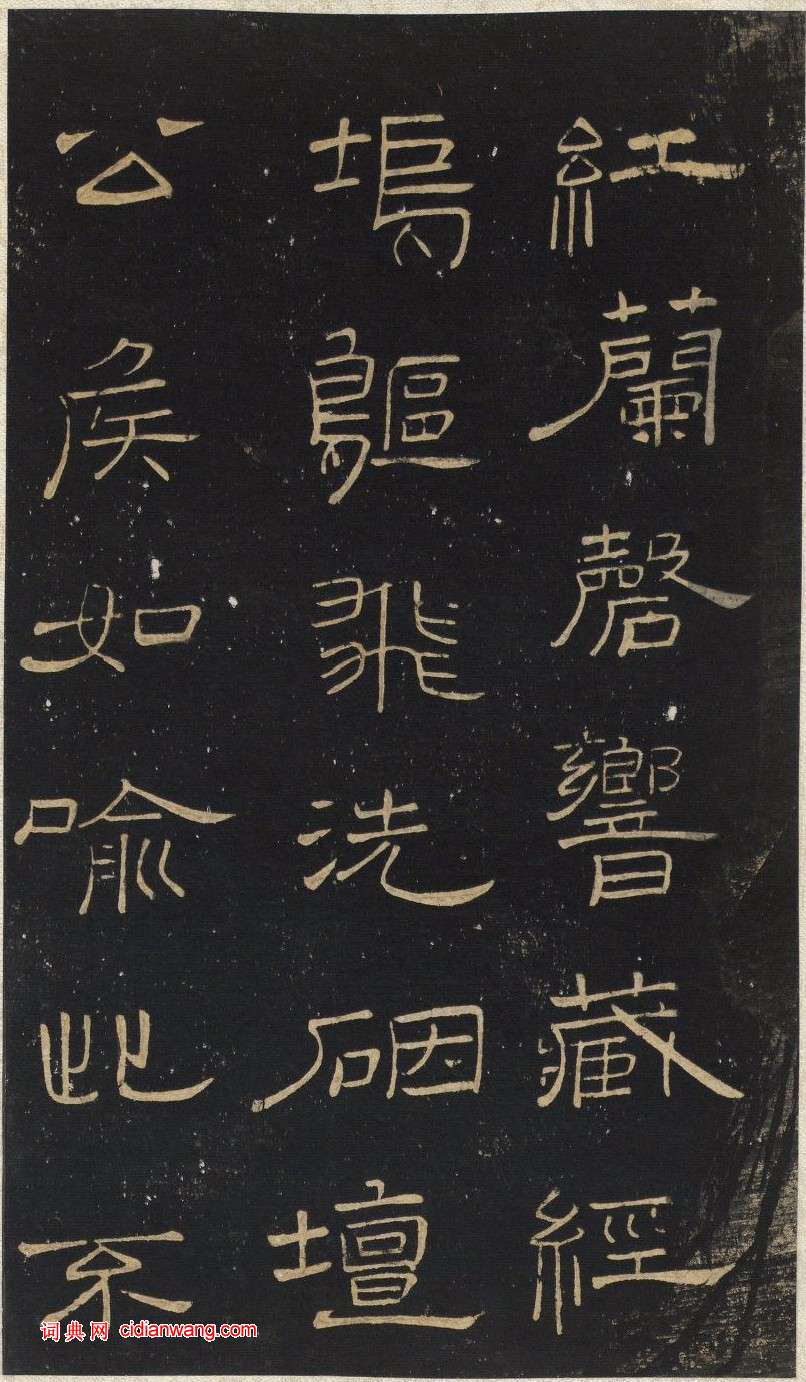 紅蘭磬響藏經
塢鷗飛洗壇
公侯如喻此不
词典网 cidianwang.com